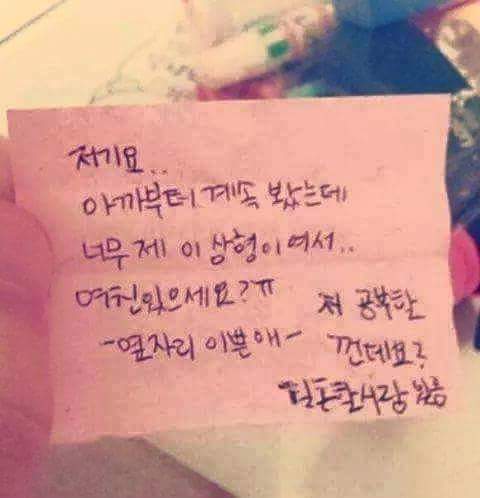 저기요..
아까부터 계속 봤는데
너무 제 이상형이여서..
여친있으세요?ㅠ
-옆자리 이쁜애-
저 공부할
껀데요?
필존할사람 있음